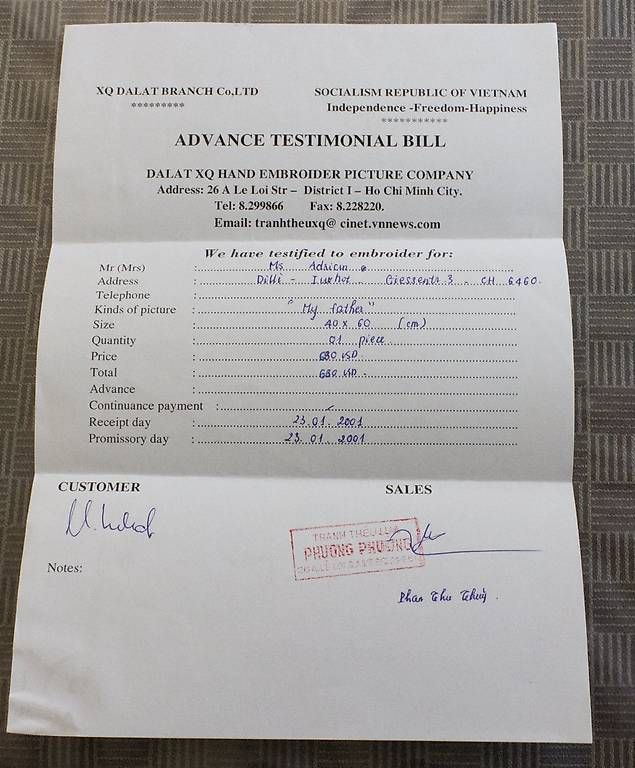 XQ DALAT BRANCH Co,LTD
*********
SOCIALISM REPUBLIC OF VIETNAM
Independence -Freedom-Happiness
***********
ADVANCE TESTIMONIAL BILL
DALAT XQ HAND EMBROIDER PICTURE COMPANY
Address: 26 A Le Loi Str – District I – Ho Chi Minh City.
Tel: 8.299866 Fax: 8.228220.
Email: tranhtheuxq@ cinet.vnnews.com
We have testified to embroider for:
Mr (Mrs) : Ms Adrien
Address : CH 6460
Telephone :
Kinds of picture : "My father"
Size : 40 x 60 (cm)
Quantity : 01 piece
Price : 680 USD
Total : 680 USD.
Advance :
Continuance payment :
Receipt day : 23.01.2001
Promissory day : 23.01.2001
CUSTOMER
SALES
TRANH THEU
PHUONG PHUONG
Phan Thu Thuỷ.
Notes: